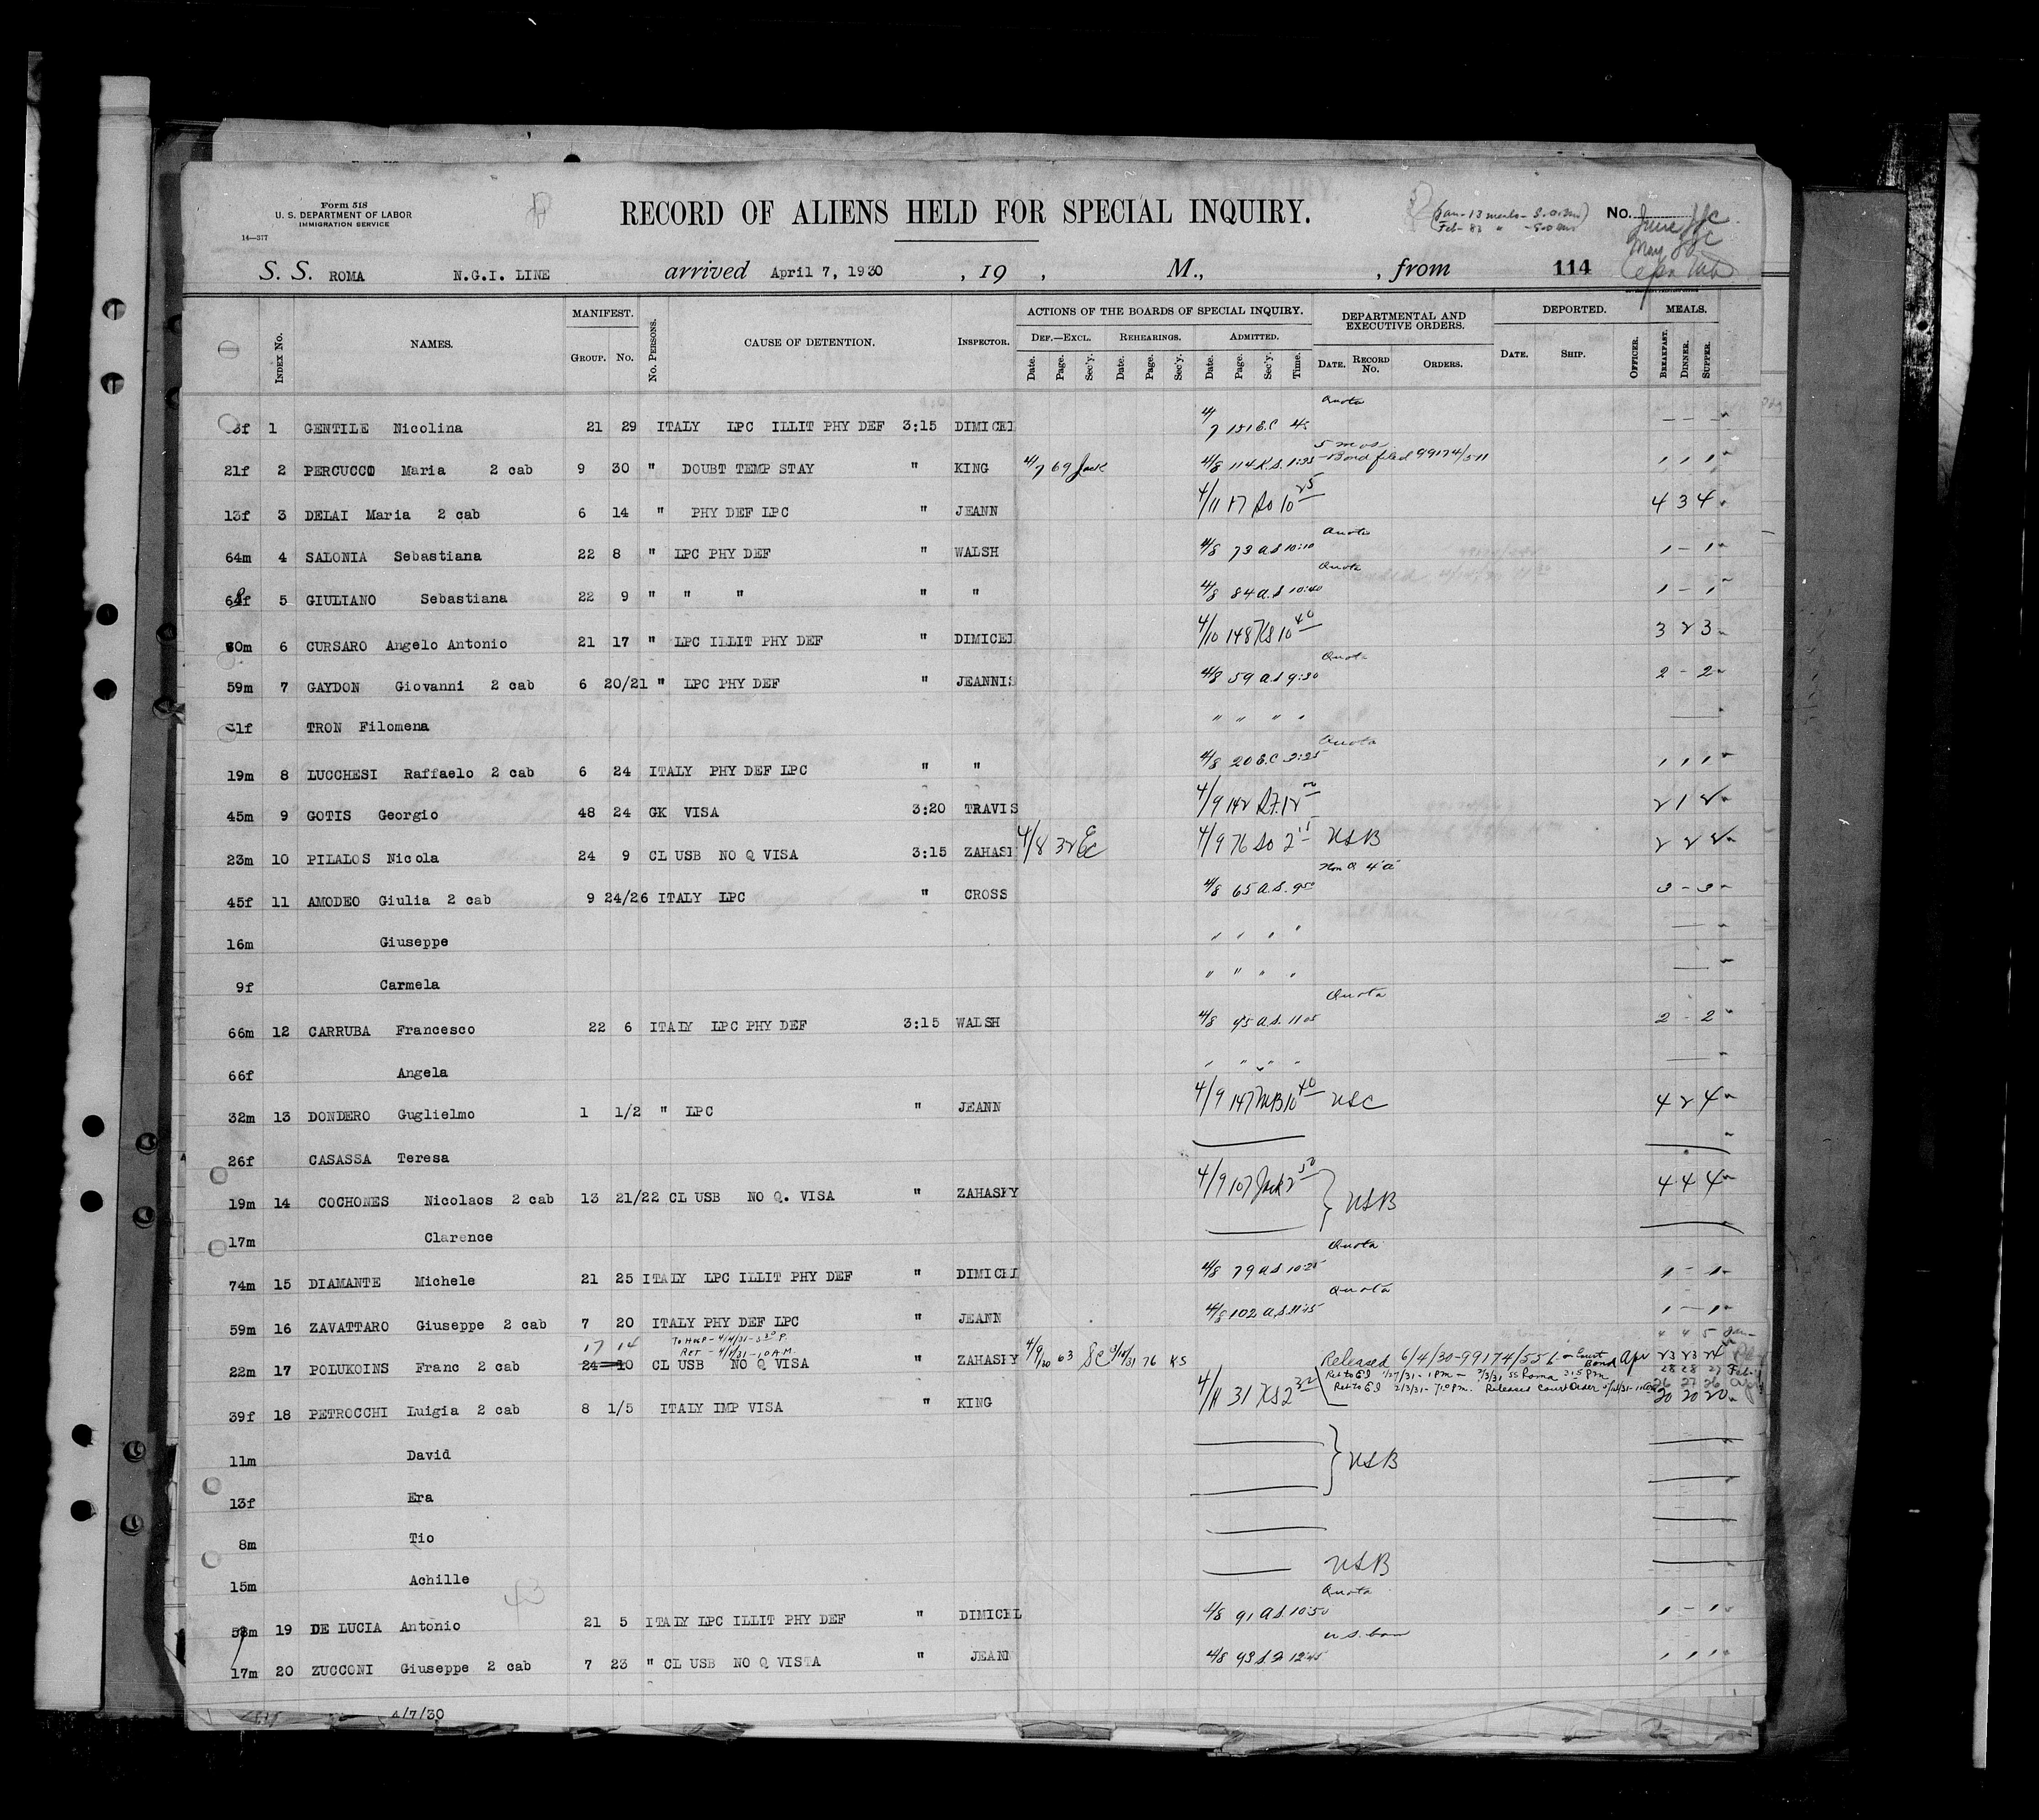 Form 518
U. S. DEPARTMENT OF LABOR
IMMIGRATION SERVICE
14—377
RECORD OF ALIENS HELD FOR SPECIAL INQUIRY.
Jan - 13 meals -
Feb - 83 "
No.
June JJC
May JJC
S. S. ROMA N.G.I. LINE arrived April 7, 1930 , 19 , M., , from 114
INDEX No. NAMES. MANIFEST. GROUP. No. No. PERSONS. CAUSE OF DETENTION. INSPECTOR. ACTIONS OF THE BOARDS OF SPECIAL INQUIRY. DEF.—EXCL. Date. Page. Sec'y. REHEARINGS. Date. Page. Sec'y. ADMITTED. Date. Page. Sec'y. Time. DEPARTMENTAL AND EXECUTIVE ORDERS. DATE. RECORD No. ORDERS. DEPORTED. DATE. SHIP. OFFICER. MEALS. BREAKFAST. DINNER. SUPPER.
1 GENTILE Nicolina 21 29 ITALY LPC ILLIT PHY DEF 3:15 DIMICEI 4/7 151 E.C 45 Quota — — —
21f 2 PERCUCCO Maria 2 cab 9 30 " DOUBT TEMP STAY " KING 4/7 69 Jack 4/8 114 K.S. 1:35 5 mos. Bond filed 99174/511 1 1 1
13f 3 DELAI Maria 2 cab 6 14 " PHY DEF LPC " JEANN 4/11 17 SO 10 25 4 3 4
64m 4 SALONIA Sebastiana 22 8 " LPC PHY DEF " WALSH 4/8 73 A.S 10:10 Quota 1 – 1
5 GIULIANO Sebastiana 22 9 " " " " " 4/8 84 A.S 10:40 Quota 1 – 1
6 CURSARO Angelo Antonio 21 17 " LPC ILLIT PHY DEF " DIMICEI 4/10 148 KS 10 40 3 2 3
59m 7 GAYDON Giovanni 2 cab 6 20/21 " LPC PHY DEF " JEANNIS 4/8 59 A.S 9:30 Quota 2 – 2
TRON Filomena " " " "
19m 8 LUCCHESI Raffaelo 2 cab 6 24 ITALY PHY DEF LPC " " 4/8 20 E.C 2:25 Quota 1 1 1
45m 9 GOTIS Georgio 48 24 GK VISA 3:20 TRAVIS 4/9 142 S.F. 12 00 2 1 2
23m 10 PILALOS Nicola 24 9 CL USB NO Q VISA 3:15 ZAHASI 4/8 32 EC 4/9 76 SO 2 15 USB 2 2 2
45f 11 AMODEO Giulia 2 cab 9 24/26 ITALY LPC " CROSS 4/8 65 A.S. 9 50 Non Q 4"a" 3 – 3
16m Giuseppe " " " "
9f Carmela " " " "
66m 12 CARRUBA Francesco 22 6 ITALY LPC PHY DEF 3:15 WALSH 4/8 95 A.S. 11 05 Quota 2 – 2
66f Angela " " " "
32m 13 DONDERO Guglielmo 1 1/2 " LPC " JEANN 4/9 147 MB 10 40 USC 4 2 4
26f CASASSA Teresa
19m 14 COCHONES Nicolaos 2 cab 13 21/22 CL USB NO Q. VISA " ZAHASKY 4/9 107 Jack 2 50 USB 4 4 4
17m Clarence
74m 15 DIAMANTE Michele 21 25 ITALY LPC ILLIT PHY DEF " DIMICEI 4/8 79 A.S 10:25 Quota 1 – 1
59m 16 ZAVATTARO Giuseppe 2 cab 7 20 ITALY PHY DEF LPC " JEANN 4/8 102 A.S 11:15 Quota 1 – 1
17 14 To Hosp - 4/4/31 - 3 30 P. 4 4 5 Jan
RET - 4/7/31 - 10 A.M.
22m 17 POLUKOINS Franc 2 cab 24 10 CL USB NO Q VISA " ZAHASKY 4/9/30 63 SC 3/10/31 76 KS Released 6/4/30-99174/556 on Court Bond Apr 23 23 24
Ret to EI 1/27/31 - 1 PM - 2/3/31 SS Roma 215 PM 28 28 27 Feb
Ret to EI 2/3/31 - 710 PM. Released Court Order 26 27 26
39f 18 PETROCCHI Luigia 2 cab 8 1/5 ITALY IMP VISA " KING 4/11 31 KS 2 30 20 20 20
11m David USB
13f Era
8m Tio
15m Achille USB
43
19 DE LUCIA Antonio 21 5 ITALY LPC ILLIT PHY DEF " DIMICEL 4/8 91 A.S. 10:50 Quota 1 – 1
17m 20 ZUCCONI Giuseppe 2 cab 7 23 " CL USB NO Q VISTA " JEANN 4/8 93 S.F 12:45 U.S. born 1 1 1
4/7/30